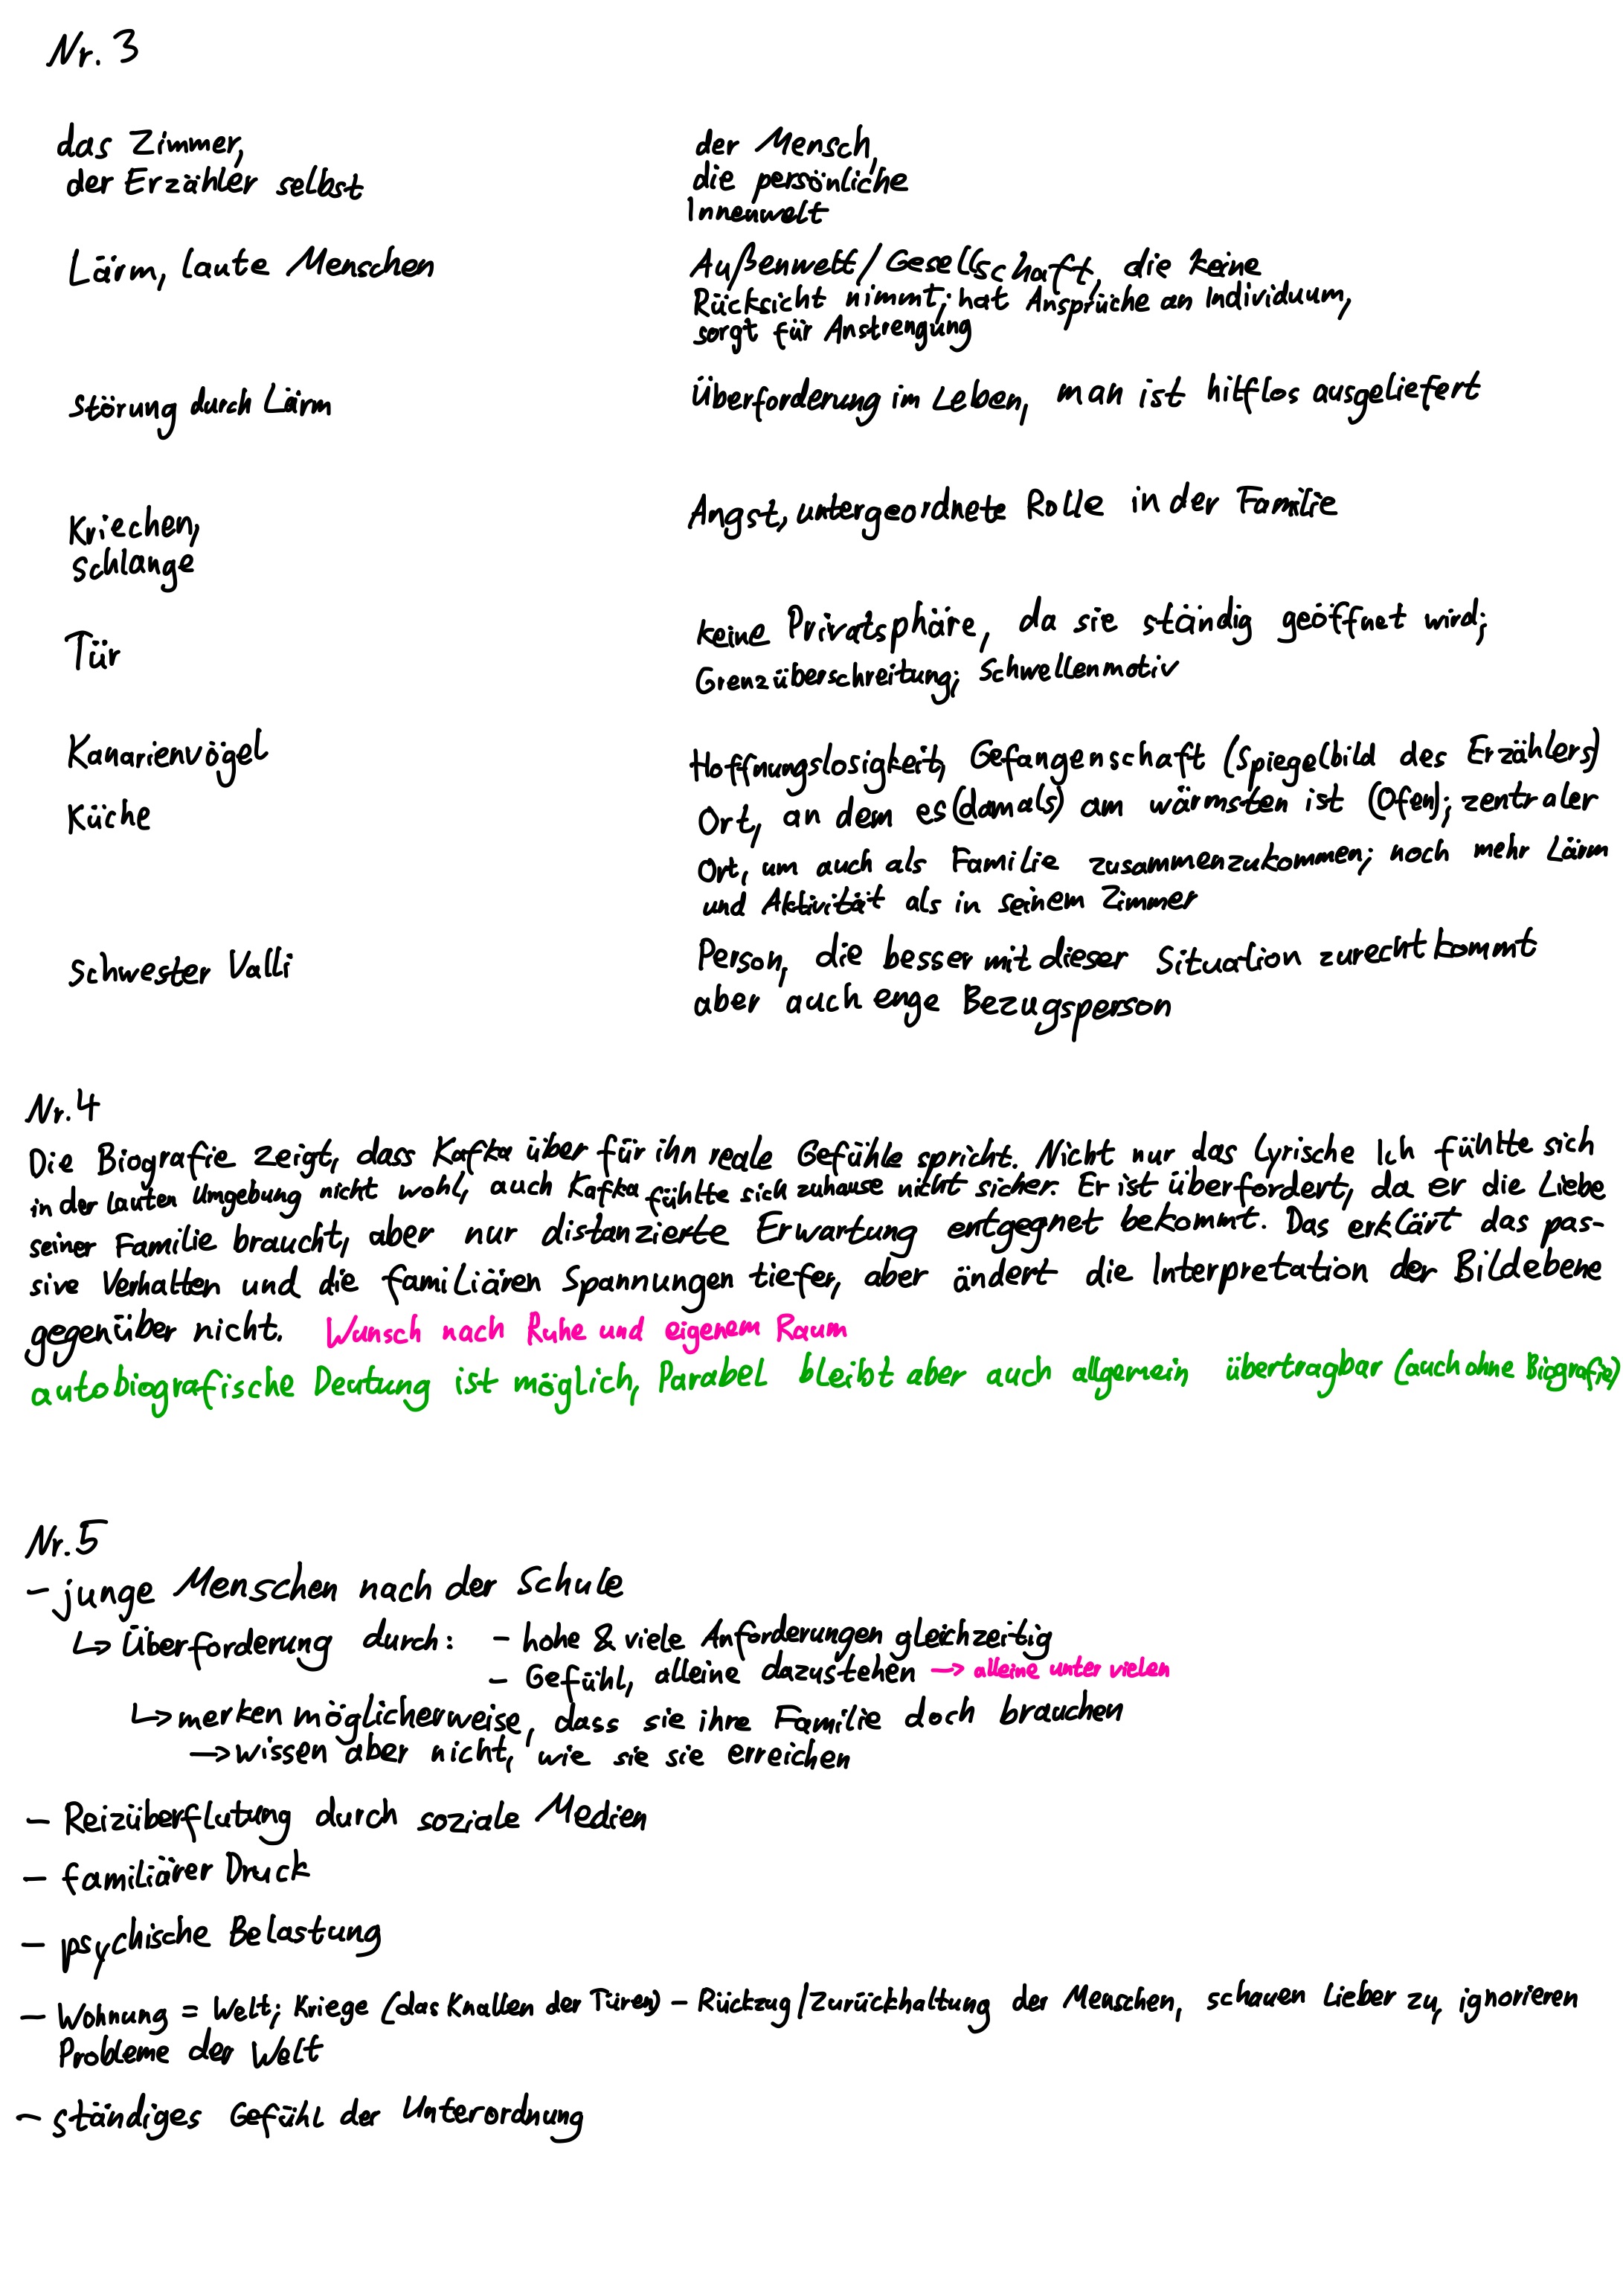 Nr. 3
das Zimmer,
der Erzähler selbst
der Mensch,
die persönliche
Innenwelt
Lärm, laute Menschen
Außenwelt/Gesellschaft, die keine
Rücksicht nimmt; hat Ansprüche an Individuum,
sorgt für Anstrengung
Störung durch Lärm
Überforderung im Leben, man ist hilflos ausgeliefert
Kriechen,
Schlange
Angst, untergeordnete Rolle in der Familie
Tür
keine Privatsphäre, da sie ständig geöffnet wird;
Grenzüberschreitung; Schwellenmotiv
Kanarienvögel
Hoffnungslosigkeit, Gefangenschaft (Spiegelbild des Erzählers)
Küche
Ort, an dem es (damals) am wärmsten ist (Ofen); zentraler
Ort, um auch als Familie zusammenzukommen; noch mehr Lärm
und Aktivität als in seinem Zimmer
Schwester Valli
Person, die besser mit dieser Situation zurechtkommt
aber auch enge Bezugsperson
Nr. 4
Die Biografie zeigt, dass Kafka über für ihn reale Gefühle spricht. Nicht nur das Lyrische Ich fühlte sich
in der lauten Umgebung nicht wohl, auch Kafka fühlte sich zuhause nicht sicher. Er ist überfordert, da er die Liebe
seiner Familie braucht, aber nur distanzierte Erwartung entgegnet bekommt. Das erklärt das pas-
sive Verhalten und die familiären Spannungen tiefer, aber ändert die Interpretation der Bildebene
gegenüber nicht. Wunsch nach Ruhe und eigenem Raum
autobiografische Deutung ist möglich, Parabel bleibt aber auch allgemein übertragbar (auch ohne Biografie)
Nr. 5
- junge Menschen nach der Schule
↳ Überforderung durch: - hohe & viele Anforderungen gleichzeitig
- Gefühl, alleine dazustehen → alleine unter vielen
↳ merken möglicherweise, dass sie ihre Familie doch brauchen
→ wissen aber nicht, wie sie sie erreichen
- Reizüberflutung durch soziale Medien
- familiärer Druck
- psychische Belastung
- Wohnung = Welt; Kriege (das Knallen der Türen) - Rückzug/Zurückhaltung der Menschen, schauen lieber zu, ignorieren
Probleme der Welt
- ständiges Gefühl der Unterordnung